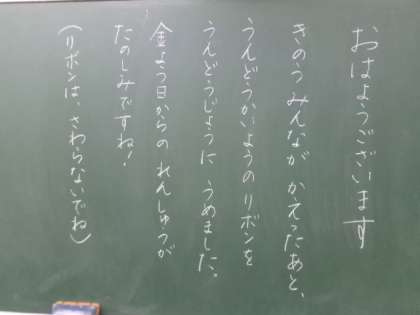 おはようございます
きのう みんなが かえったあと、
うんどうかいようの リボンを
うんどうじょうに うめました。
金よう日からの れんしゅうが
たのしみですね!
(リボンは、さわらないでね)